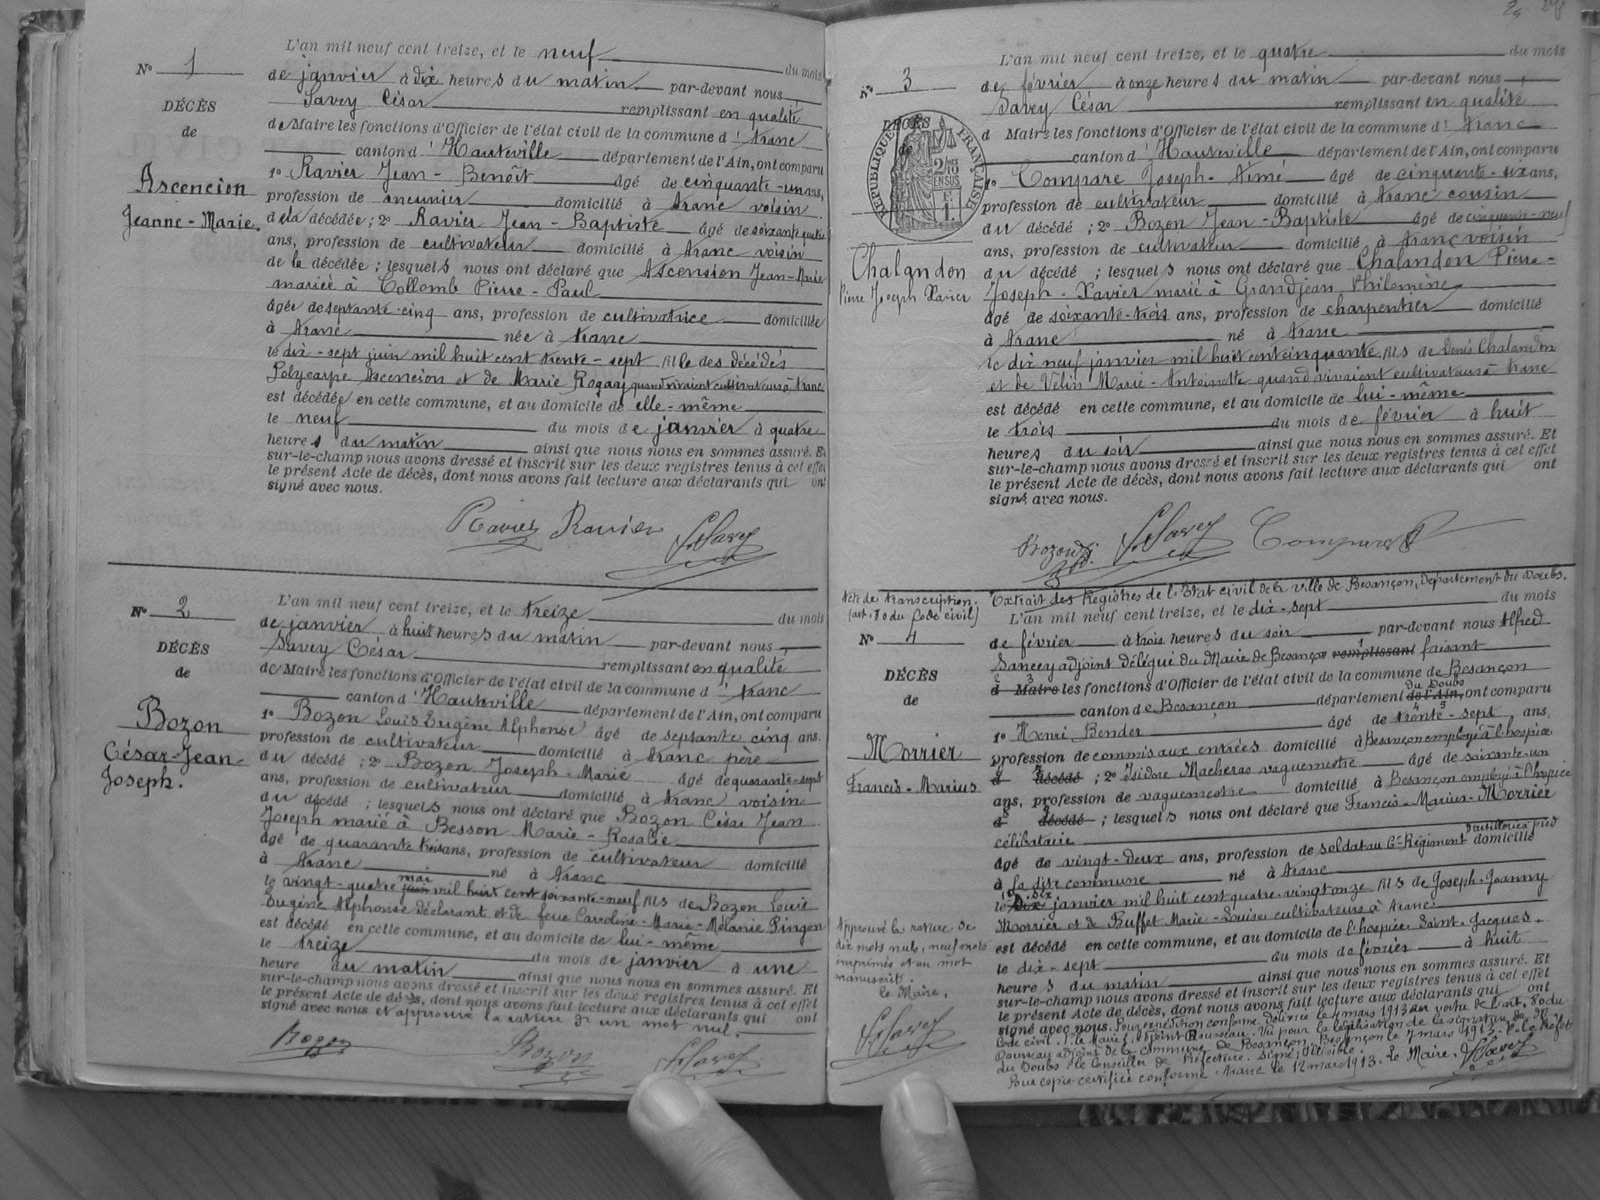 L'an mil neuf cent treize, et le neuf du mois
N° 1
de janvier à dix heures du matin par-devant nous
Savey César remplissant en qualité
DÉCÈS
de Maire les fonctions d'Officier de l'état civil de la commune d' Aranc
de
canton d' Hauteville département de l'Ain, ont comparu
1° Ravier Jean-Benoît âgé de cinquante-un ans,
Ascencion
profession de meunier domicilié à Aranc voisin
Jeanne-Marie.
de la décédée ; 2° Ravier Jean-Baptiste âgé de soixante quatre
ans, profession de cultivateur domicilié à Aranc voisin
de la décédée ; lesquels nous ont déclaré que Ascension Jean-Marie
mariée à Collomb Pierre-Paul
âgée de septante-cinq ans, profession de cultivatrice domiciliée
à Aranc née à Aranc
le dix-sept juin mil huit cent trente-sept fille des décédés
Polycarpe Ascencion et de Marie quand vivaient cultivateurs à Aranc
est décédée en cette commune, et au domicile de elle-même
le neuf du mois de janvier à quatre
heures du matin ainsi que nous nous en sommes assuré. Et
sur-le-champ nous avons dressé et inscrit sur les deux registres tenus à cet effet
le présent Acte de décès, dont nous avons fait lecture aux déclarants qui ont
signé avec nous.
Ravier Ravier C. Savey
L'an mil neuf cent treize, et le treize du mois
N° 2
de janvier, à huit heures du matin par-devant nous
Savey César remplissant en qualité
DÉCÈS
de Maire les fonctions d'Officier de l'état civil de la commune d' Aranc
de
canton d' Hauteville département de l'Ain, ont comparu
1° Bozon Louis Eugène Alphonse âgé de septante cinq ans.
Bozon
profession de cultivateur domicilié à Aranc père
César-Jean-
du décédé ; 2° Bozon Joseph-Marie âgé de quarante-sept
Joseph.
ans, profession de cultivateur domicilié à Aranc voisin
du décédé ; lesquels nous ont déclaré que Bozon César Jean
Joseph marié à Besson Marie-Rosalie
âgé de quarante trois ans, profession de cultivateur domicilié
à Aranc né à Aranc
mai
le vingt-quatre juin mil huit cent soixante-neuf fils de Bozon Louis
Eugène Alphonse déclarant et de feue Caroline-Marie-Mélanie Pingon
est décédé en cette commune, et au domicile de lui-même
le treize du mois de janvier à une
heure du matin ainsi que nous nous en sommes assuré. Et
sur-le-champ nous avons dressé et inscrit sur les deux registres tenus à cet effet
le présent Acte de décès, dont nous avons fait lecture aux déclarants qui ont
signé avec nous et approuvé la rature de un mot nul.
Bozon Bozon C. Savey
L'an mil neuf cent treize, et le quatre du mois
N° 3
de février à onze heures du matin par-devant nous
Savey César remplissant en qualité
DÉCÈS
de
RÉPUBLIQUE FRANÇAISE
d Maire les fonctions d'Officier de l'état civil de la commune d' Aranc
canton d' Hauteville département de l'Ain, ont comparu
1° Compare Joseph-Aimé âgé de cinquante-six ans,
profession de cultivateur domicilié à Aranc cousin
du décédé ; 2° Bozon Jean-Baptiste âgé de cinquante-neuf
ans, profession de cultivateur domicilié à Aranc voisin
Chalandon
Pierre Joseph Xavier
du décédé ; lesquels nous ont déclaré que Chalandon Pierre-
Joseph-Xavier marié à Grandjean Philomène
âgé de soixante-trois ans, profession de charpentier domicilié
à Aranc né à Aranc
le dix neuf janvier mil huit cent cinquante fils de Denis Chalandon
et de Velin Marie-Antoinette quand vivaient cultivateurs à Aranc
est décédé en cette commune, et au domicile de lui-même
le trois du mois de février à huit
heures du soir ainsi que nous nous en sommes assuré. Et
sur-le-champ nous avons dressé et inscrit sur les deux registres tenus à cet effet
le présent Acte de décès, dont nous avons fait lecture aux déclarants qui ont
signé avec nous.
Bozon C. Savey Compare
Acte de transcription. Extrait des Registres de l'Etat civil de la ville de Besançon, Département du Doubs.
(art. 80 du code civil)
L'an mil neuf cent treize, et le dix-sept du mois
N° 4
de février à trois heures du soir par-devant nous Alfred
Sancey adjoint délégué du Maire de Besançon remplissant faisant
DÉCÈS
d Maire les fonctions d'Officier de l'état civil de la commune de Besançon
de
du Doubs
canton de Besançon département de l'Ain, ont comparu
1° Henri Bender âgé de trente-sept ans,
Morrier
Francis-Marius
profession de commis aux entrées domicilié à Besançon employé à l'hospice
d décédé ; 2° Isidore Macheras vaguemestre âgé de soixante-un
ans, profession de vaguemestre domicilié à Besançon employé à l'hospice
d décédé ; lesquels nous ont déclaré que Francis-Marius-Morrier
célibataire
d'artillerie à pied
âgé de vingt-deux ans, profession de soldat au 6e Régiment domicilié
à la dite commune né à Aranc
le Dix janvier mil huit cent quatre-vingt onze fils de Joseph-Joanny
Morrier et de Buffet Marie-Louise cultivateurs à Aranc.
est décédé en cette commune, et au domicile de l'hospice Saint-Jacques.
le dix-sept du mois de février à huit
heures du matin ainsi que nous nous en sommes assuré. Et
sur-le-champ nous avons dressé et inscrit sur les deux registres tenus à cet effet
le présent Acte de décès, dont nous avons fait lecture aux déclarants qui ont
signé avec nous. Pour expédition conforme délivrée le mars 1913 en vertu de l'art. 80 du
Code civil. P. le Maire, l'adjoint Rousseau. Vu pour la légalisation de la signature de Mr
Rousseau adjoint de la commune de Besançon. Besançon le 7 mars 1913. P. le Préfet
du Doubs le Conseiller de Préfecture. Signé: Illisible.
Pour copie certifiée conforme. Aranc le 12 mars 1913. Le Maire, C. Savey
Approuvé la rature de
dix mots nuls, neuf mots
imprimés et un mot
manuscrit.
Le Maire,
C. Savey